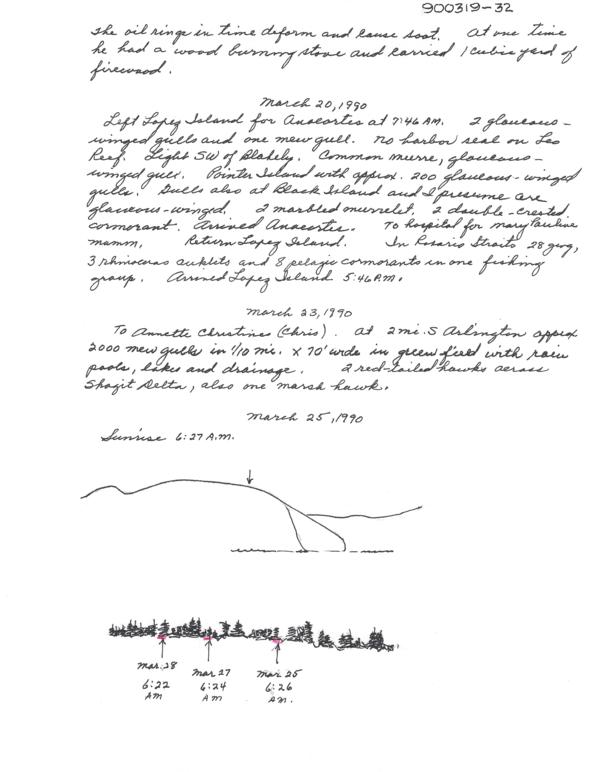 900319-32
The oil rings in time deform and cause soot. At one time
he had a wood burning stove and carried 1 cubic yard of
firewood.
March 20, 1990
Left Lopez Island for Anacortes at 7:46 AM. 2 glaucous-
winged gulls and one mew gull. No harbor seal on Leo
Reef. Light SW of Blakely. Common murre, glaucous-
winged gull. Pointer Island with approx. 200 glaucous-winged
gulls. Gulls also at Black Island and I presume are
glaucous-winged. 2 marbled murrelet. 2 double-crested
cormorant. Arrived Anacortes. To hospital for Mary Pauline
mamm. Return Lopez Island. In Rosario Straits 28 gwg,
3 rhinoceros auklets and 8 pelagic cormorants in one fishing
group. Arrived Lopez Island 5:46 P.M.
March 23, 1990
To Annette Christines (Chris). At 2 mi. S Arlington approx
2000 mew gulls in 1/10 mi. x 70' wide in green field with rain
pools, lakes and drainage. 2 red-tailed hawks across
Skagit Delta, also one marsh hawk.
March 25, 1990
Sunrise 6:27 A.M.
Mar. 28 Mar 27 Mar 25
6:22 6:24 6:26
AM AM AM.